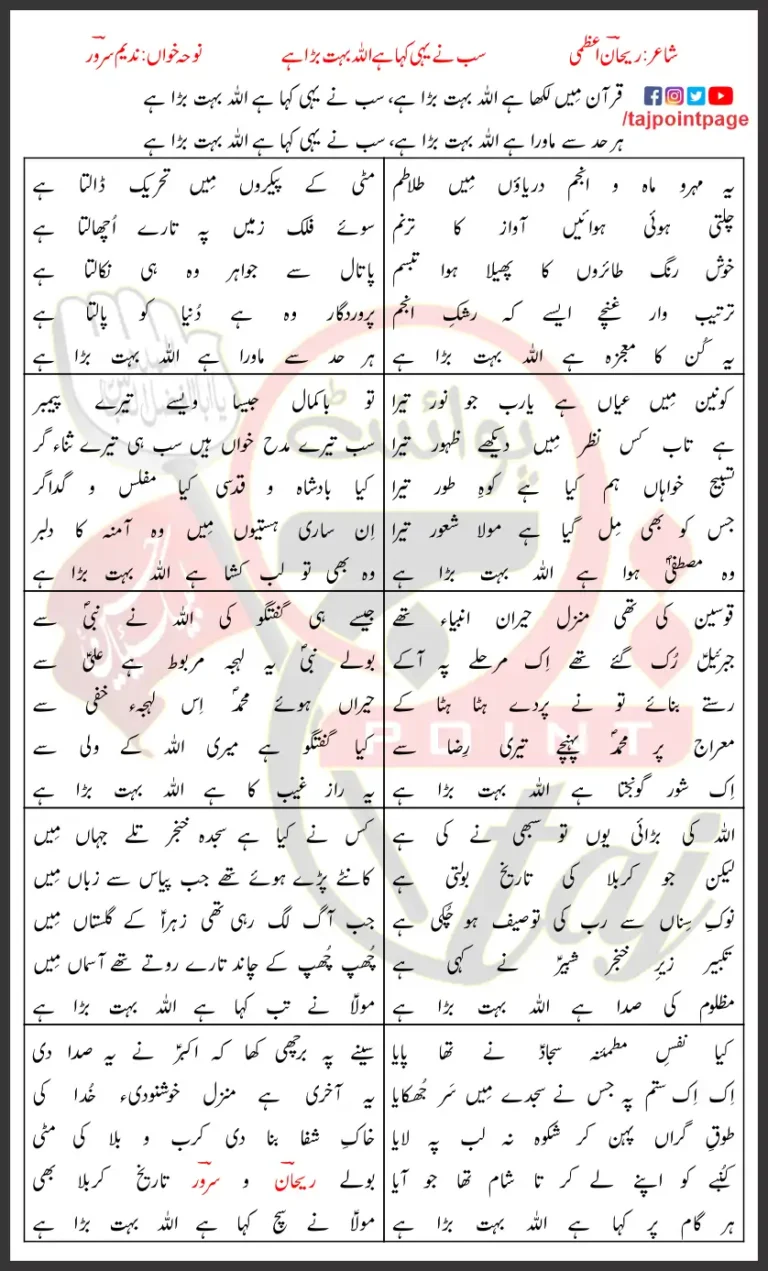 شاعر: ریحان اعظمی سب نے یہی کہا ہے اللہ بہت بڑا ہے نوحہ خواں: ندیم سرور
قرآن مِیں لکھا ہے اللہ بہت بڑا ہے، سب نے یہی کہا ہے اللہ بہت بڑا ہے
/tajpointpage
ہر حد سے ماورا ہے اللہ بہت بڑا ہے، سب نے یہی کہا ہے اللہ بہت بڑا ہے
یہ مہرو ماہ و انجم دریاؤں مِیں طلاطم
چلتی ہوئی ہوائیں آواز کا ترنم
خوش رنگ طائروں کا پھیلا ہوا تبسم
ترتیب وار غنچے ایسے کہ رشکِ انجم
یہ کُن کا معجزہ ہے اللہ بہت بڑا ہے
مٹی کے پیکروں مِیں تحریک ڈالتا ہے
سوئے فلک زمیں پہ تارے اُچھالتا ہے
پاتال سے جواہر وہ ہی نکالتا ہے
پروردگار وہ ہے دُنیا کو پالتا ہے
ہر حد سے ماورا ہے اللہ بہت بڑا ہے
کونین مِیں عیاں ہے یارب جو نور تیرا
ہے تاب کس نظر مِیں دیکھے ظہور تیرا
تسبیح خواہاں ہم کیا ہے کوہِ طور تیرا
جس کو بھی مِل گیا ہے مولا شعور تیرا
وہ مصطفیؐ ہوا ہے اللہ بہت بڑا ہے
تو باکمال جیسا ویسے تیرے پیمبر
سب تیرے مدح خواں ہیں سب ہی تیرے ثناء گر
کیا بادشاہ و قدسی کیا مفلس و گداگر
اِن ساری ہستیوں مِیں وہ آمنہ کا دلبر
وہ بھی تو لب کشا ہے اللہ بہت بڑا ہے
قوسین کی تھی منزل حیران انبیاء تھے
جبرئیل رُک گئے تھے اِک مرحلے پہ آکے
رستے بنائے تو نے پردے ہٹا ہٹا کے
معراج پر محمدؐ پہنچے تیری رِضا سے
اِک شور گونجتا ہے اللہ بہت بڑا ہے
جیسے ہی گفتگو کی اللہ نے نبیؐ سے
بولے نبیؐ یہ لہجہ مربوط ہے علیؑ سے
حیراں ہوئے محمدؐ اِس لہجہء خفی سے
کیا گفتگو ہے میری اللہ کے ولی سے
یہ راز غیب کا ہے اللہ بہت بڑا ہے
اللہ کی بڑائی یوں تو سبھی نے کی ہے
لیکن جو کربلا کی تاریخ بولتی ہے
نوکِ سِناں سے رب کی توصیف ہو چُکی ہے
تکبیر زیرِ خنجر شبیرؑ نے کہی ہے
مظلوم کی صدا ہے اللہ بہت بڑا ہے
کس نے کیا ہے سجدہ خنجر تلے جہاں مِیں
کانٹے پڑے ہوئے تھے جب پیاس سے زباں مِیں
جب آگ لگ رہی تھی زہراؑ کے گلستاں مِیں
چُھپ چُھپ کے چاند تارے روتے تھے آسماں مِیں
مولاؑ نے تب کہا ہے اللہ بہت بڑا ہے
کیا نفسِ مطمئنہ سجادؑ نے تھا پایا
اِک اِک ستم پہ جس نے سجدے مِیں سَر جُھکایا
طوقِ گراں پہن کر شکوہ نہ لب پہ لایا
کُنبے کو اپنے لے کر تا شام تھا جو آیا
ہر گام پر کہا ہے اللہ بہت بڑا ہے
سینے پہ برچھی کھا کہ اکبرؑ نے یہ صدا دی
یہ آخری ہے منزل خوشنودیء خُدا کی
خاکِ شفا بنا دی کرب و بلا کی مٹی
بولے ریحان و سرور تاریخ کربلا بھی
مولاؑ نے سچ کہا ہے اللہ بہت بڑا ہے
پوائنٹ
POINT
taj